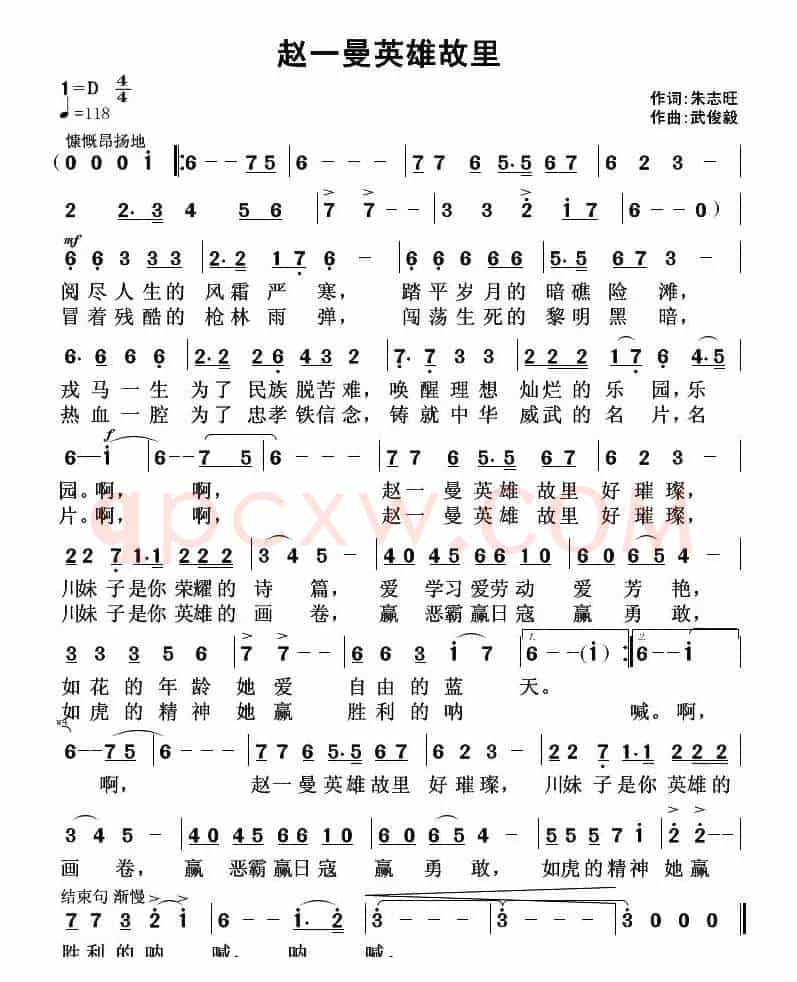 赵一曼英雄故里
1=D 4/4
♩=118
作词:朱志旺
作曲:武俊毅
慷慨昂扬地
(0 0 0 i ‖:6 - - 75 | 6 - - - | 77 6 5·5 67 | 6 2 3 - |
2 2·3 4 56 | 7 7 - - | 3 3 2 i7 | 6 - - 0) |
mf
66 33 33 | 2·2 17 6 - | 66 66 66 | 5·5 67 3 - |
阅尽人生的 风霜 严 寒, 踏平岁月的 暗礁 险 滩,
冒着残酷的 枪林 雨 弹, 闯荡生死的 黎明 黑 暗,
6·6 66 | 2·2 26 43 2 | 7·7 33 | 2 22 17 6 4·5 |
戎马一生 为了 民族 脱苦难, 唤醒理想 灿烂的乐 园,乐
热血一腔 为了 忠孝 铁信念, 铸就中华 威武的名 片,名
f
6 - i - | 6 - 7 5 | 6 - - - | 77 6 5·5 67 | 6 2 3 - |
园。啊, 啊, 赵一曼英雄 故里 好 璀璨,
片。啊, 啊, 赵一曼英雄 故里 好 璀璨,
22 7 1·1 222 | 3 4 5 - | 40 45 66 10 | 60 45 5 - |
川妹 子是你 荣耀的 诗 篇, 爱 学习 爱劳动 爱 芳 艳,
川妹 子是你 英雄的 画 卷, 赢 恶霸 赢日寇 赢 勇 敢,
3 3 3 5 6 | 7 7 - - | 66 3 i 7 | 1. 6 - - (i) :‖ 2. 6 - - i |
如花 的 年 龄 她 爱 自由 的 蓝 天。
如虎 的 精 神 她 赢 胜利 的 呐 喊。啊,
6 - - 75 | 6 - - - | 77 6 5·5 67 | 6 2 3 - | 22 7 1·1 222 |
啊, 赵一曼英雄故里 好 璀璨, 川妹 子是你 英雄的
3 4 5 - | 40 45 66 10 | 60 45 5 - | 55 55 7 | i 2 2 - |
画 卷, 赢 恶霸 赢日寇 赢 勇 敢, 如虎的精神 她 赢
结束句 渐慢
77 3 2 i | 6 - - i·2 | 3 - - - | 3 - - - | 3 0 0 0 ‖
胜利的呐 喊, 呐 喊。
qpcxw.com